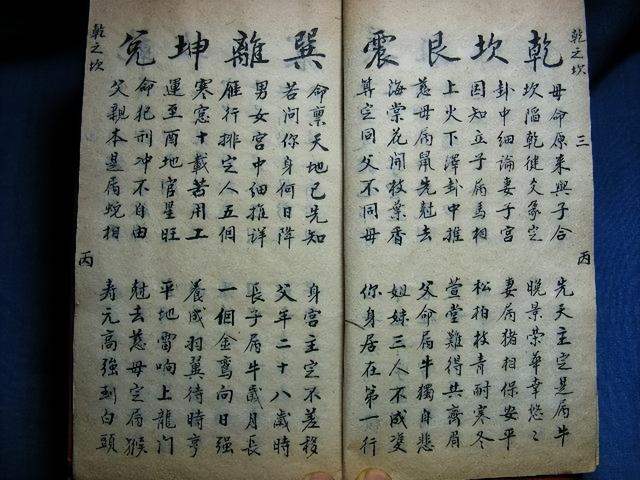 乾之坎
三
丙
乾坎艮震
母命原来與子合
先天主定是屬牛
坎陥乾健爻象定
晚景荣華幸悠々
卦中細論妻子宮
妻屬猪相保安平
因知立子屬馬相
松柏枝青耐寒冬
上火下澤卦中推
萱堂難得共齊眉
慈母屬鼠先尅去
父命屬牛獨自悲
海棠花開枝葉香
姐妹三人不成雙
算定同父不同母
你身居在第一行
巽離坤兌
命禀天地已先知
身宫主定不差移
若問你身何日降
父年二十八歲時
男女宮中細推详
長子屬牛歲月長
雁行排定人五個
一個金鸞向日强
寒窓十載苦用工
養成羽翼待時亨
運至酉地官星旺
平地雷响上龍门
命犯刑冲不自由
尅去慈母定屬猴
父親本是屬蛇相
寿元高強到白頭
乾之坎
丙